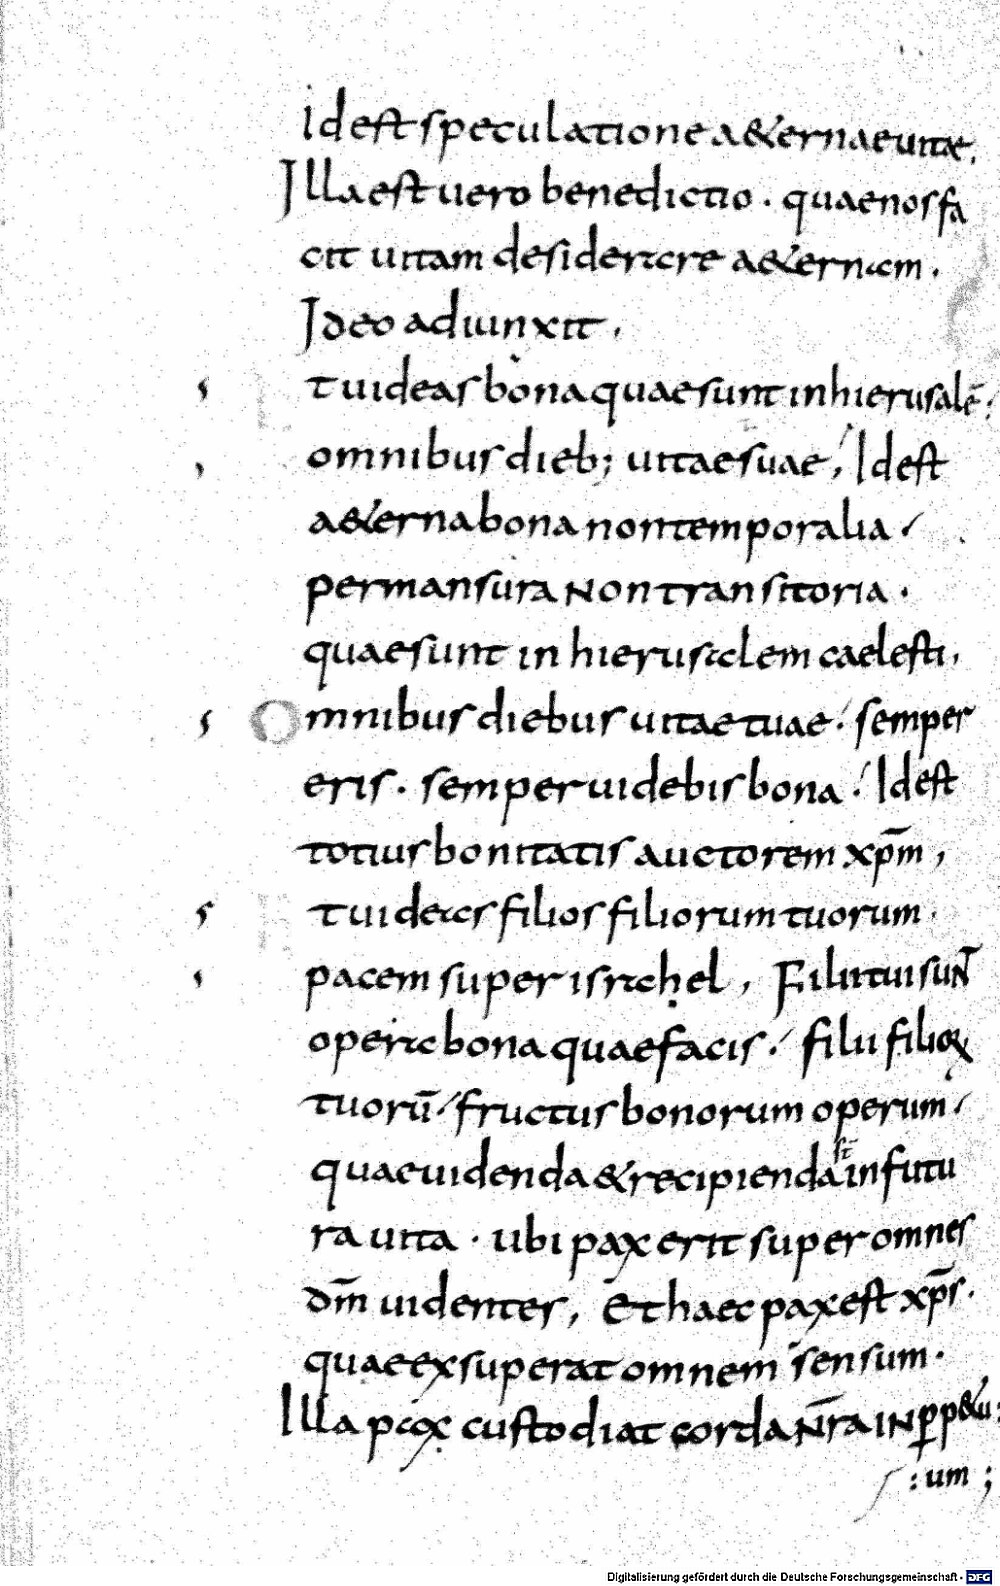 Id est speculatione a&ernae uitae.
Illa est uero benedictio · quae nos fa
cit uitam desiderare a&ernam ·
Ideo adiunxit ,
t uideas bona quae sunt in hierusalē ·
omnibus dieb; uitae suae , Id est
a&erna bona non temporalia ·
permansura Non transitoria ·
quae sunt in hierusalem caelesti ,
Omnibus diebus uitae tuae · semper
eris · semper uidebis bona · Id est
totius bonitatis auctorem xp̄m ,
t uideas filios filiorum tuorum ·
pacem super israhel , Filii tui suNT
opera bona quae facis · filii filioꝝ
tuorū · fructus bonorum operum ·
quae uidenda & recipienda st̄ in futu
ra uita · ubi pax erit super omnes
dm̄ uidentes , Et haec pax est xp̄s ·
quae exsuperat omnem sensum ·
Illa pax custodiat corda Nr̄a iN ꝑp&u:
:um ;
Digitalisierung gefördert durch die Deutsche Forschungsgemeinschaft - DFG